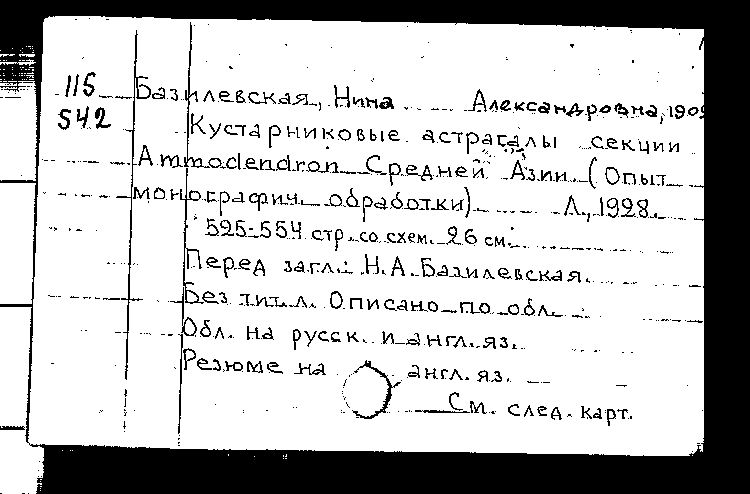 115 Базилевская, Нина Александровна, 1902
542 Кустарниковые астрагалы секции
Ammodendron Средней Азии. (Опыт
монографич. обработки). Л., 1928.
525-554 стр. со схем. 26 см.
Перед загл.: Н.А. Базилевская.
Без тит. л. Описано по обл.
Обл. на русск. и англ. яз.
Резюме на англ. яз.
См. след. карт.